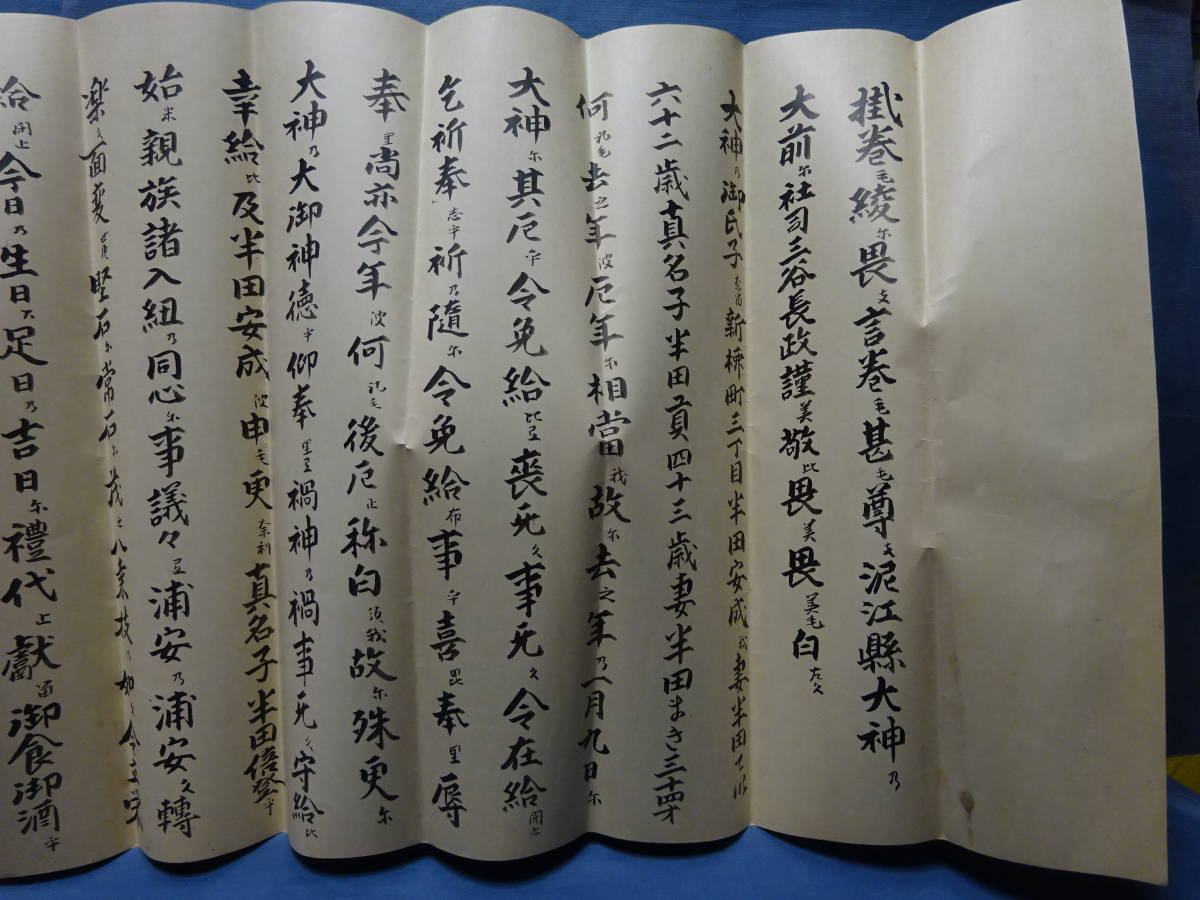 掛巻毛綾尓畏支言巻毛甚毛尊支泥江縣大神乃
大前尓社司三谷長政謹美敬比畏美畏美毛白左久
大神乃御氏子新棟町三丁目半田安成我妻半田
六十二歳真名子半田貢四十三歳妻半田まき三十四才
何礼毛去之年波厄年尓相當我故尓去之年乃一月九日尓
大神尓其厄乎令免給比弖喪无久事无久令在給開止
乞祈奉志乎祈乃隨尓令免給布事乎喜毘奉里辱
奉里尚亦今年波何礼毛後厄止称白須我故尓殊更尓
大神乃大御神徳乎仰奉里弖禍神乃禍事无久守給比
幸給比及半田安成波申毛更奈利真名子半田倍登乎
始米親族諸入紐乃同心尓事議々弖浦安乃浦安久轉
楽久面変堅石尓常石尓茂之八桑枝乃如久令立栄
給開止今日乃生日乃足日乃吉日尓禮代止献留御食御酒乎